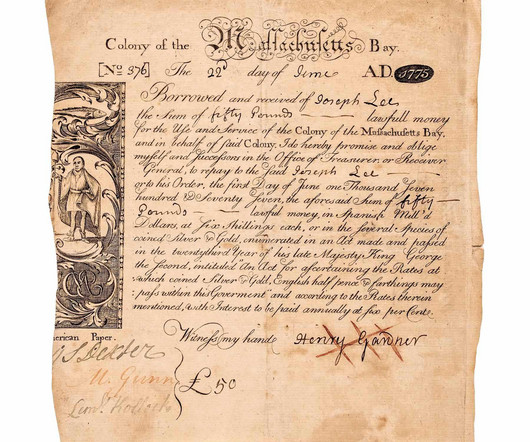 Colony of the Massachusetts Bay.
[No 376] The 22d day of June AD 1775
Borrowed and received of Joseph Lee
the Sum of fifty Pounds lawfull money
for the Use and Service of the Colony of the Massachusetts Bay.
and in behalf of said Colony, I do hereby promise and oblige
myself and Successors in the Office of Treasurer, or Receiver
General, to repay to the said Joseph Lee
or to his Order, the first Day of June one Thousand Seven
hundred & Seventy Seven, the aforesaid Sum of fifty
Pounds lawful money, in Spanish Mill'd
Dollars, at Six Shillings each, or in the several Species of
coined Silver & Gold, enumerated in an Act made and passed
in the twenty third Year of his late Majesty King George
the Second, intitled An Act for ascertaining the Rates at
which coined Silver & Gold, English half pence & farthings may
pass within this Goverment and according to the Rates therein
mentioned, with Interest to be paid annually at six per Cent.
Witness my hand Henry Gardner
erican Paper.
Dexter
W. Gunn
£50